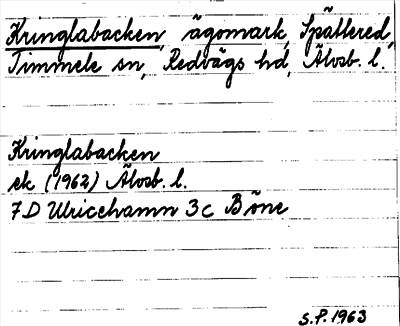 Kringlabacken, ägomark, Spättered,
Timmele sn, Redvägs hd, Älvsb. l.
Kringlabacken
ek (1962) Älvsb. l.
7D Ulricehamn 3c Böne
S.P. 1963